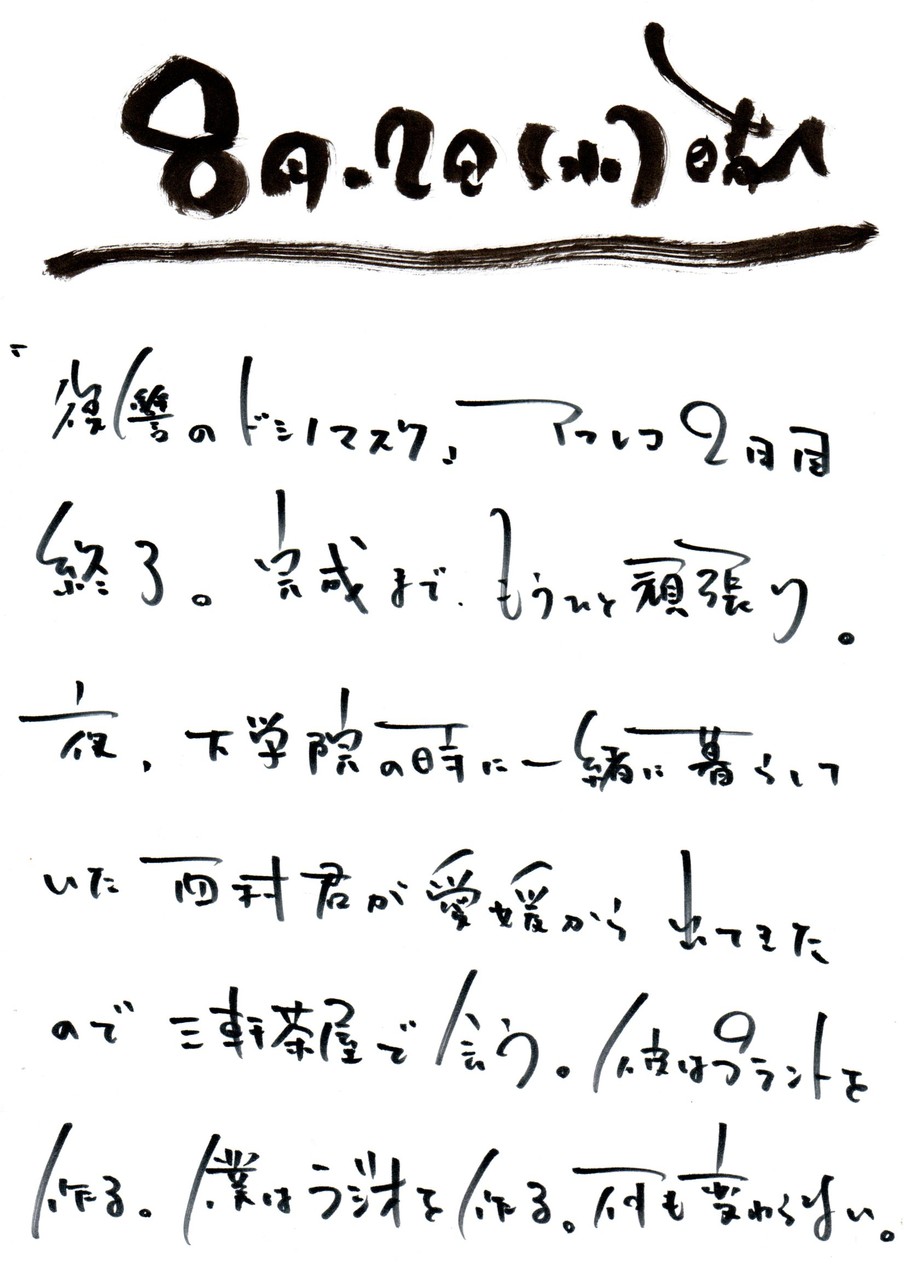 8月.2日(水)晴れ
「復讐のドミノマスク」アフレコ2日目
終了。完成まで、もうひと頑張り。
夜、下学院の時に一緒に暮らして
いた西村君が愛媛から出てきた
ので三軒茶屋で会う。彼はプラントを
作る。僕はラジオを作る。何も変わらない。